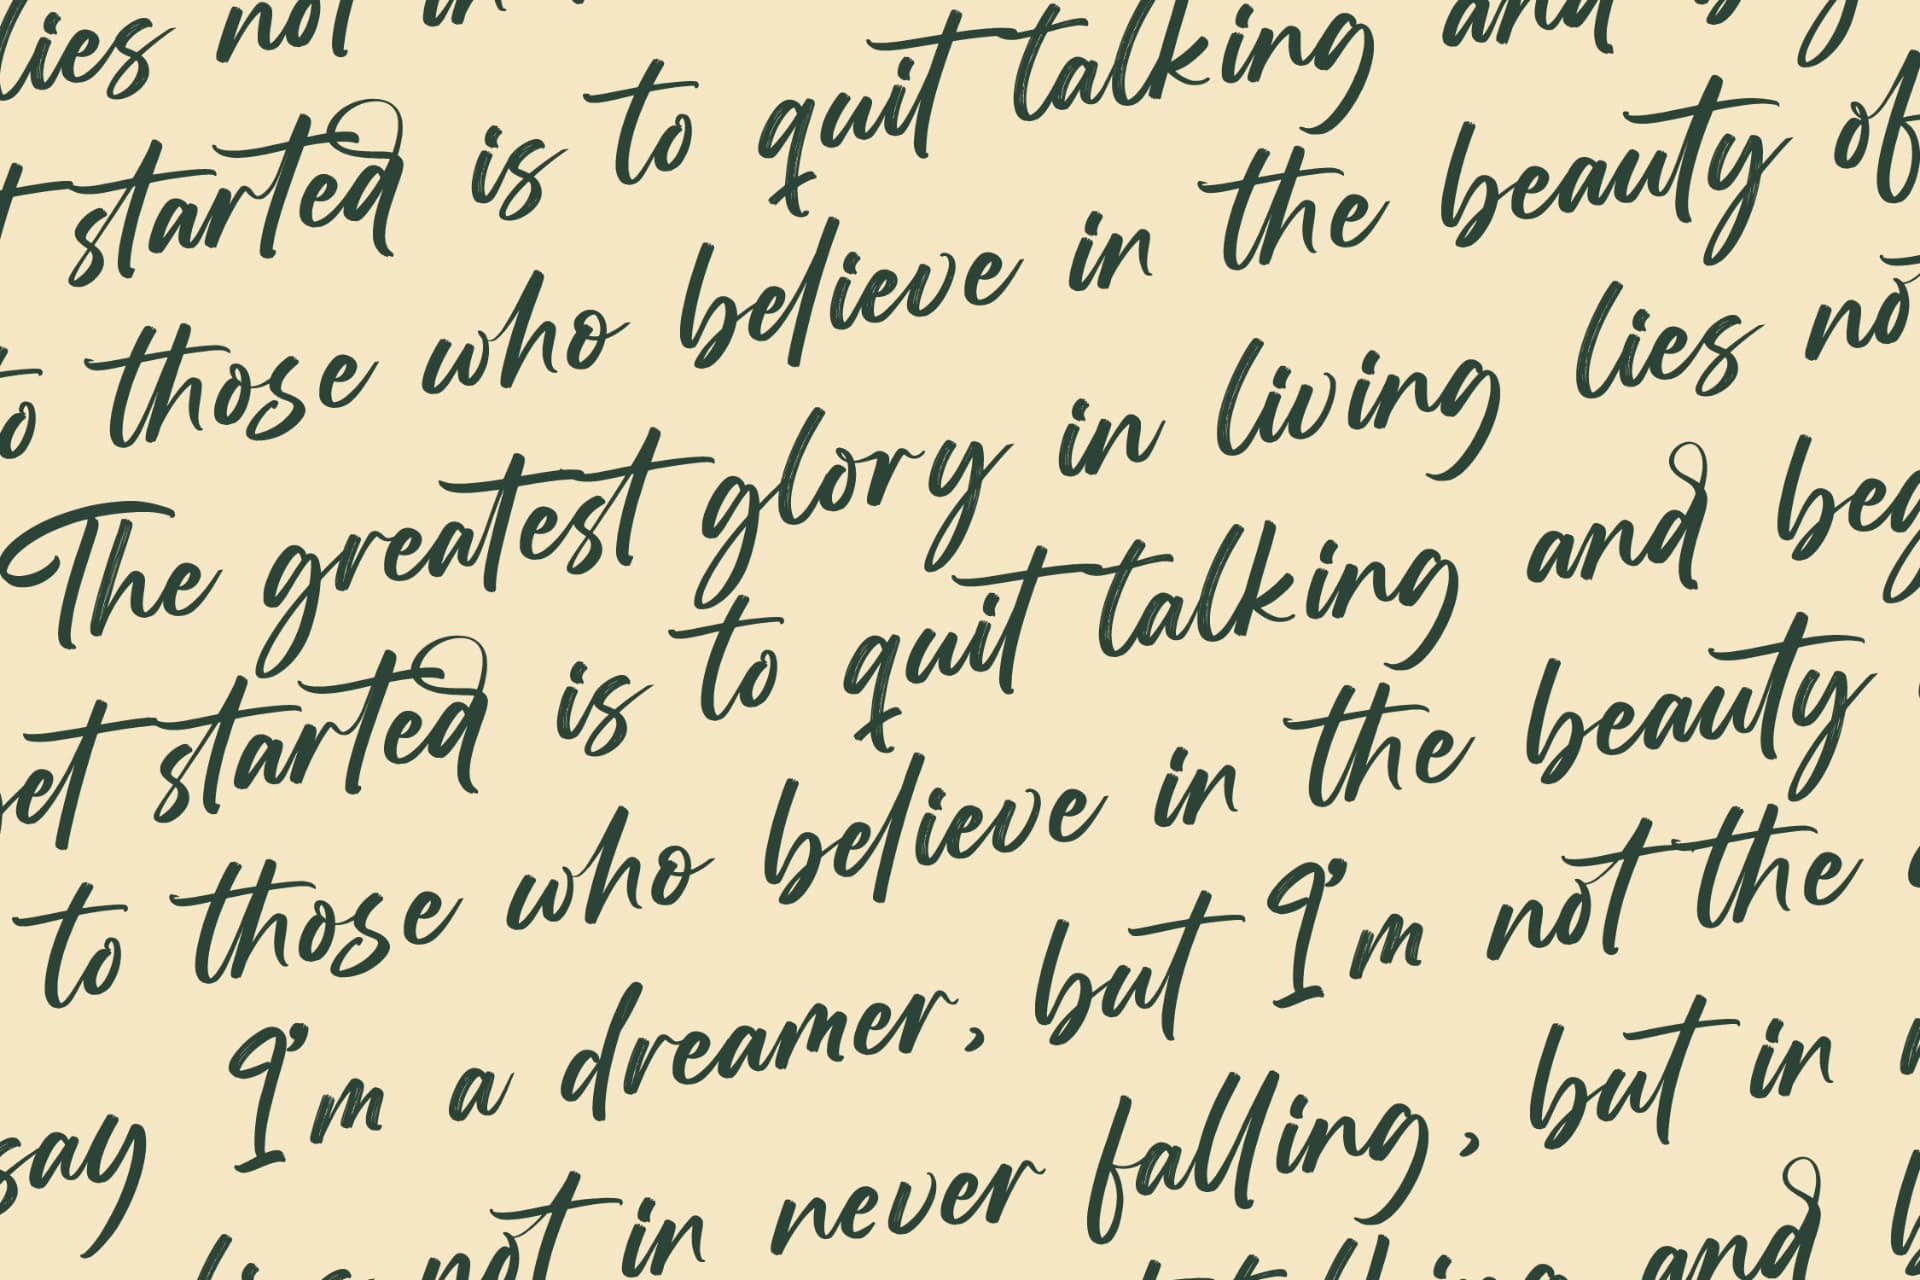 lies not in
started is to quit talking and
to those who believe in the beauty of
The greatest glory in living lies not
get started is to quit talking and beg
to those who believe in the beauty
say I'm a dreamer, but I'm not the
lies not in never falling, but in
talking and